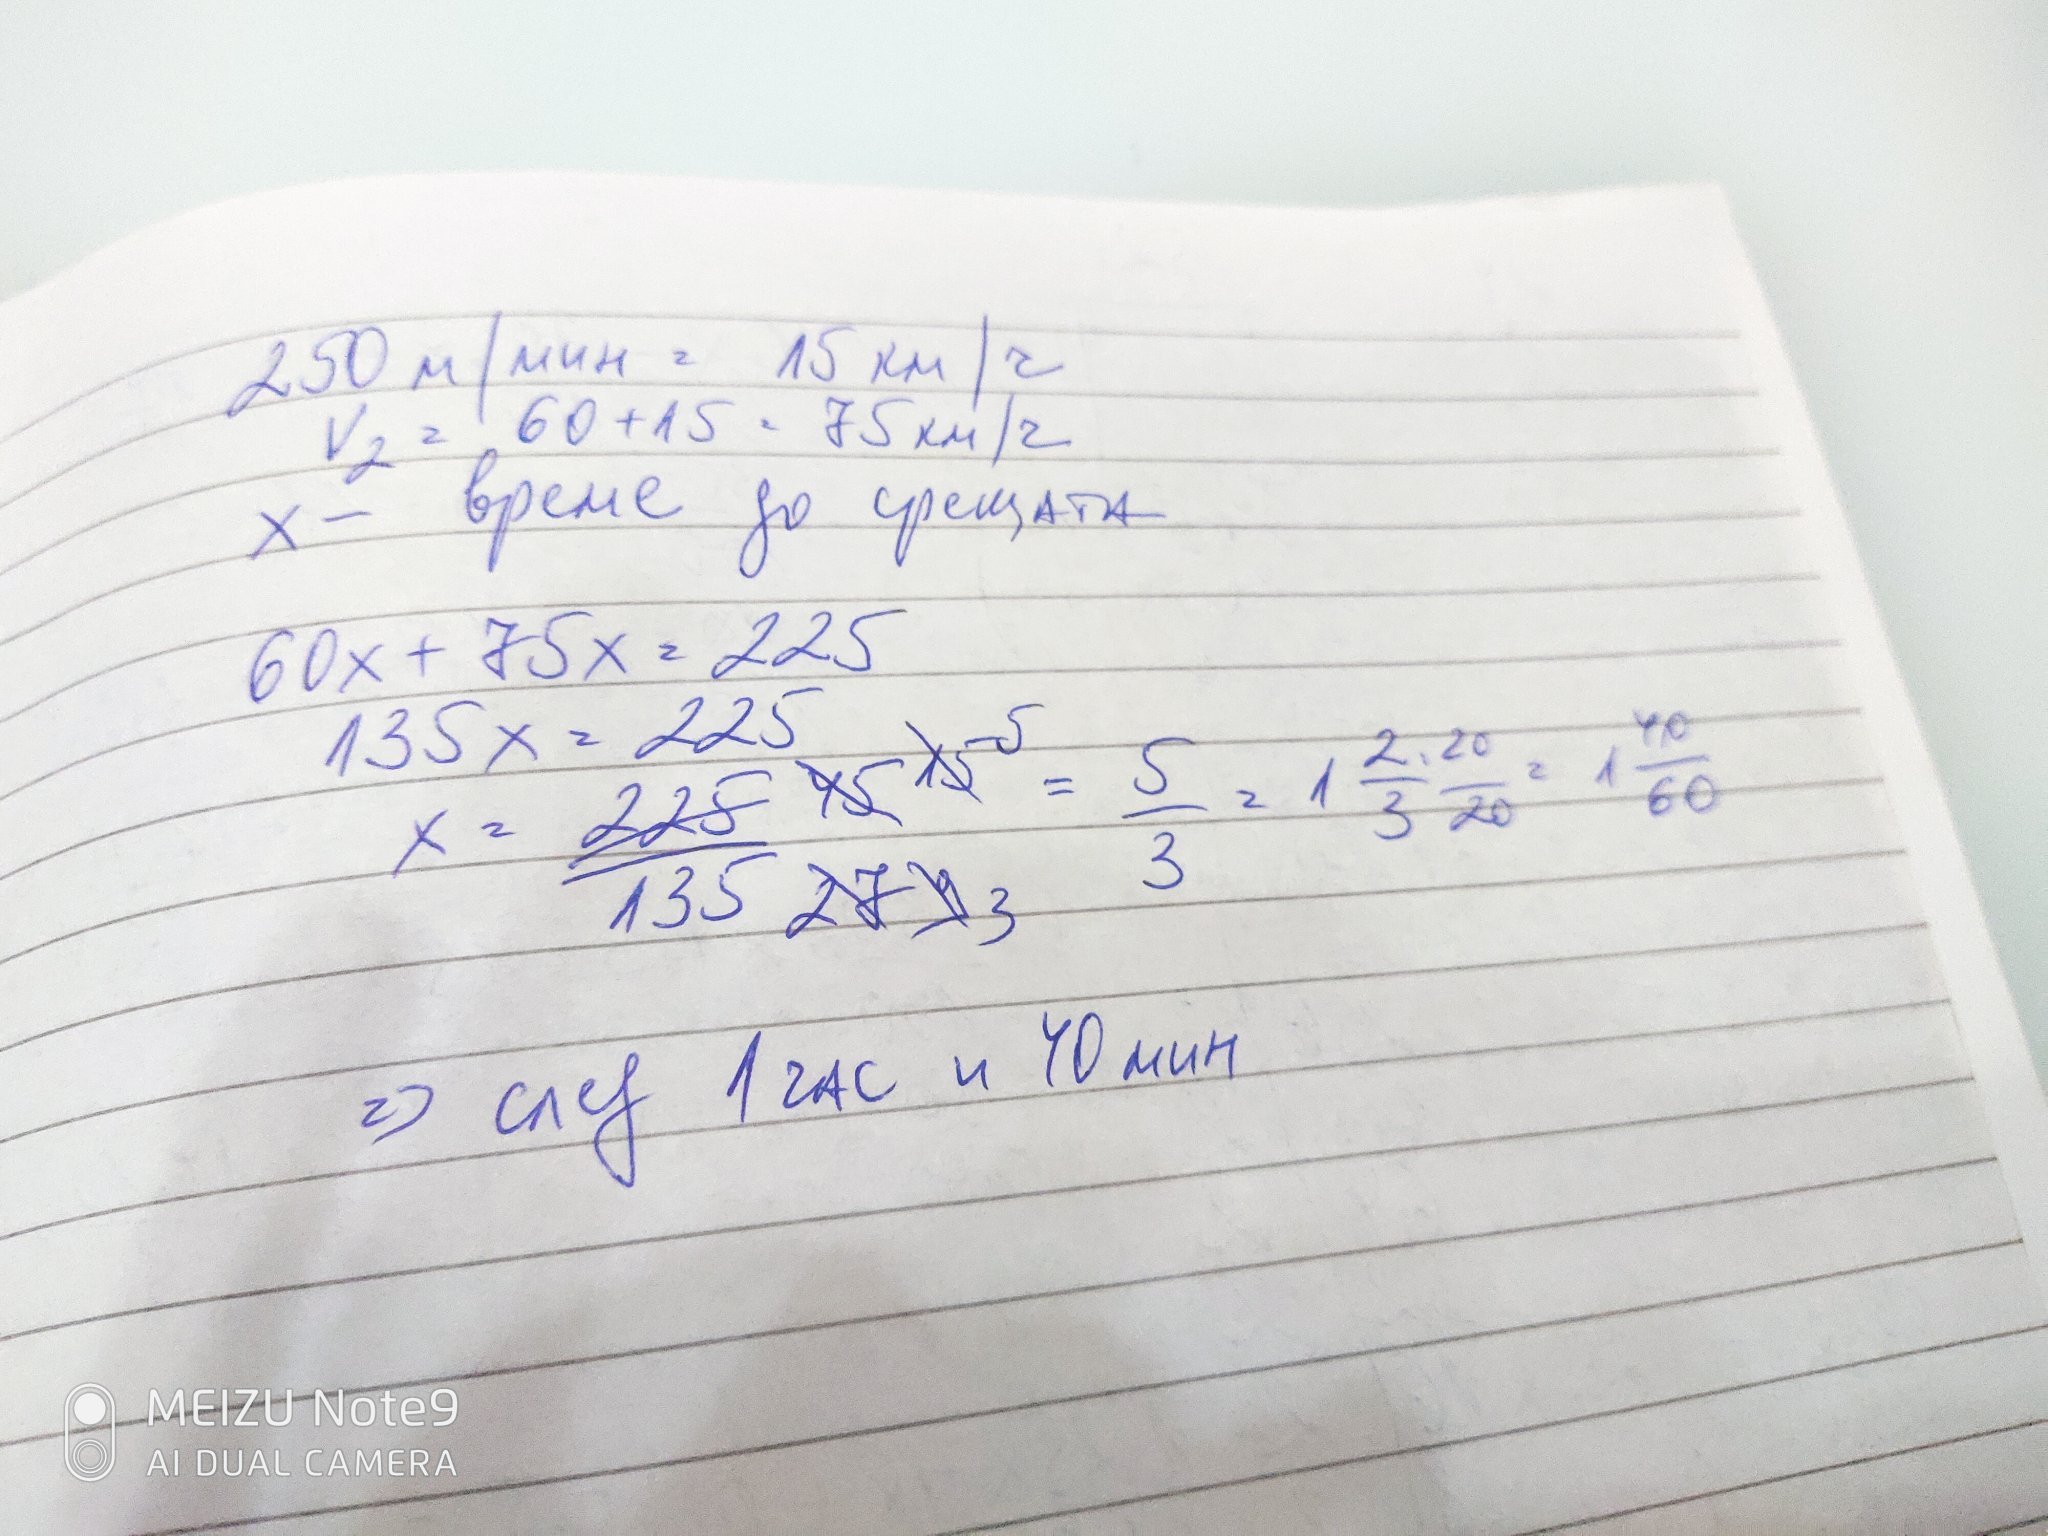 250 м/мин = 15 км/ч
V2 = 60 + 15 = 75 км/ч
x – време до срещата
60x + 75x = 225
135x = 225
x = 225/135 45/27 15/9 5/3 = 5/3 = 1 2/3 . 20/20 = 1 40/60
=> след 1 час и 40 мин
MEIZU Note9
AI DUAL CAMERA